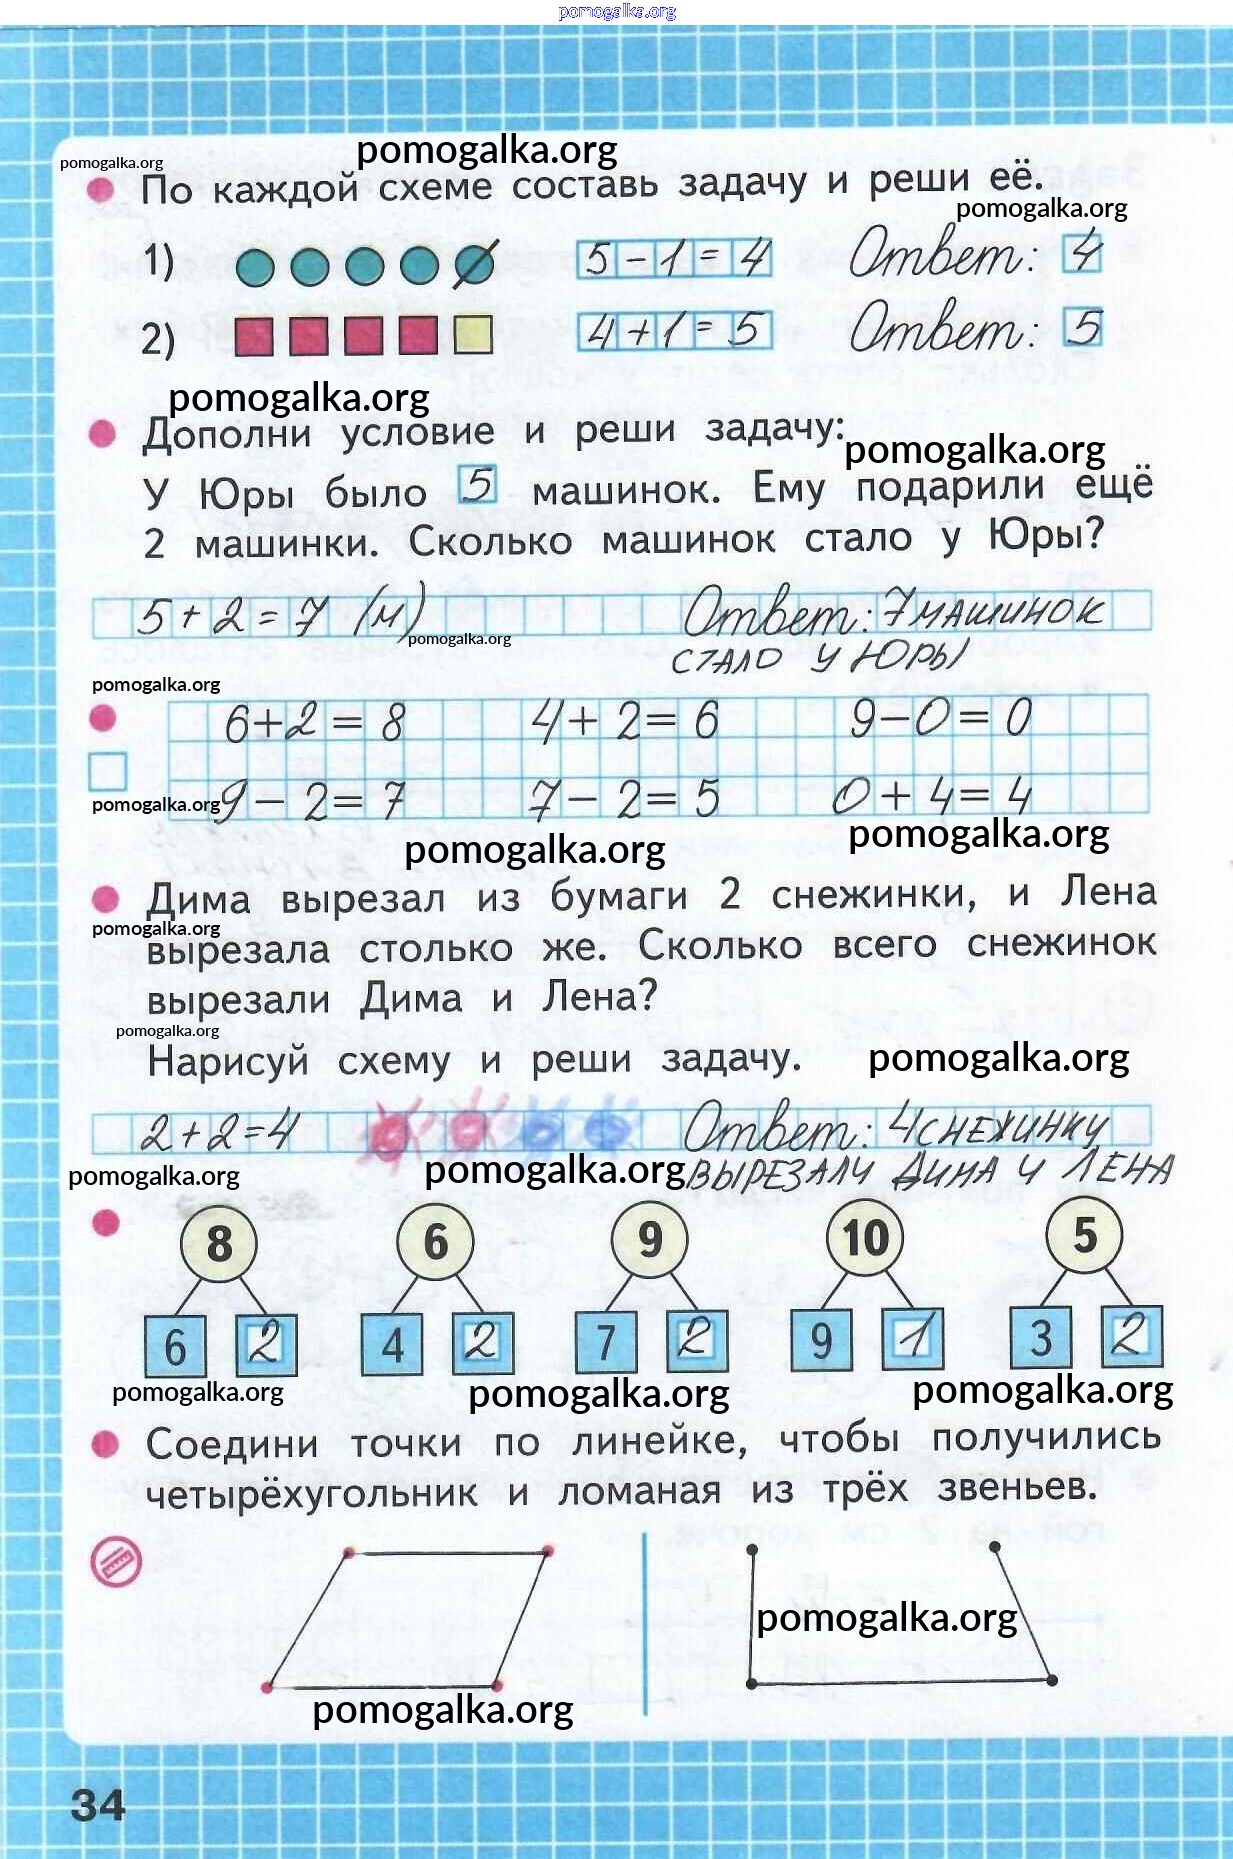 pomogalka.org
pomogalka.org
pomogalka.org
По каждой схеме составь задачу и реши её.
pomogalka.org
1) 5 - 1 = 4 Ответ: 4
2) 4 + 1 = 5 Ответ: 5
pomogalka.org
Дополни условие и реши задачу:
pomogalka.org
У Юры было 5 машинок. Ему подарили ещё
2 машинки. Сколько машинок стало у Юры?
5 + 2 = 7 (м) Ответ: 7 МАШИНОК
pomogalka.org
СТАЛО У ЮРЫ
pomogalka.org
6+2=8 4+2=6 9-0=0
9-2=7 7-2=5 0+4=4
pomogalka.org
pomogalka.org
pomogalka.org
Дима вырезал из бумаги 2 снежинки, и Лена
pomogalka.org
вырезала столько же. Сколько всего снежинок
вырезали Дима и Лена?
pomogalka.org
Нарисуй схему и реши задачу.
pomogalka.org
2+2=4 Ответ: 4 СНЕЖИНКУ
pomogalka.org
pomogalka.org
ВЫРЕЗАЛИ ДИМА И ЛЕНА
8 6 9 10 5
6 2 4 2 7 2 9 1 3 2
pomogalka.org
pomogalka.org
pomogalka.org
Соедини точки по линейке, чтобы получились
четырёхугольник и ломаная из трёх звеньев.
pomogalka.org
pomogalka.org
34